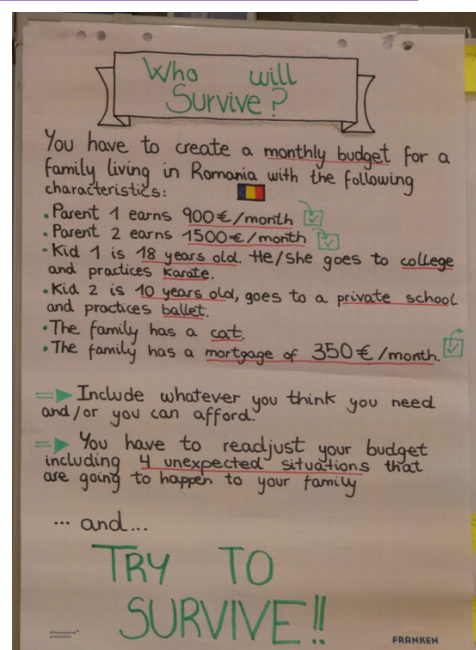 Who will
Survive?
You have to create a monthly budget for a
family living in Romania with the following
characteristics:
• Parent 1 earns 900€/month
• Parent 2 earns 1500€/month
• Kid 1 is 18 years old. He/she goes to college
and practices karate.
• Kid 2 is 10 years old, goes to a private school
and practices ballet.
• The family has a cat.
• The family has a mortgage of 350€/month.
Include whatever you think you need
and/or you can afford.
You have to readjust your budget
including 4 unexpected situations that
are going to happen to your family
... and...
TRY TO
SURVIVE!!
FRANKEN